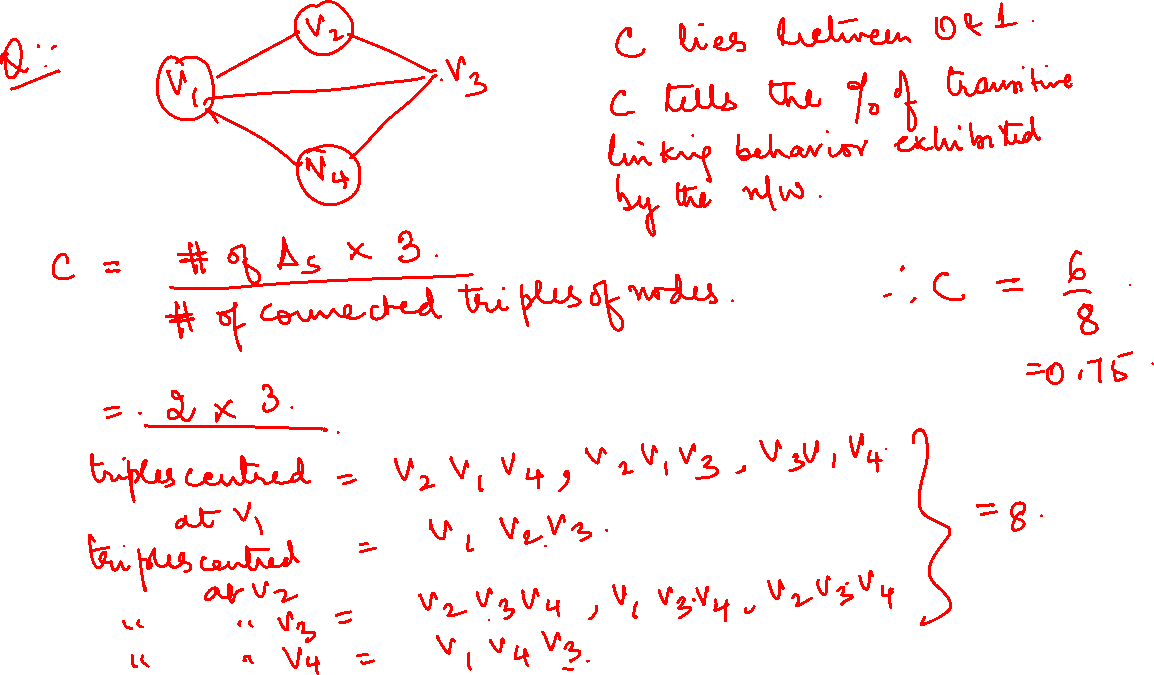 Q:-
V₂
V₁
V₃
V₄
C lies between 0 & 1.
C tells the % of transitive
linking behavior exhibited
by the n/w.
C = # of Δs × 3.
# of connected triples of nodes.
∴ C = 6
8
= 0.75.
= 2 × 3.
triples centred = V₂ V₁ V₄, V₂ V₁ V₃, V₃ V₁ V₄
at V₁
triples centred = V₁ V₂ V₃.
at V₂
" " V₃ = V₂ V₃ V₄, V₁ V₃ V₄, V₂ V₃ V₄
" " V₄ = V₁ V₄ V₃.
= 8.